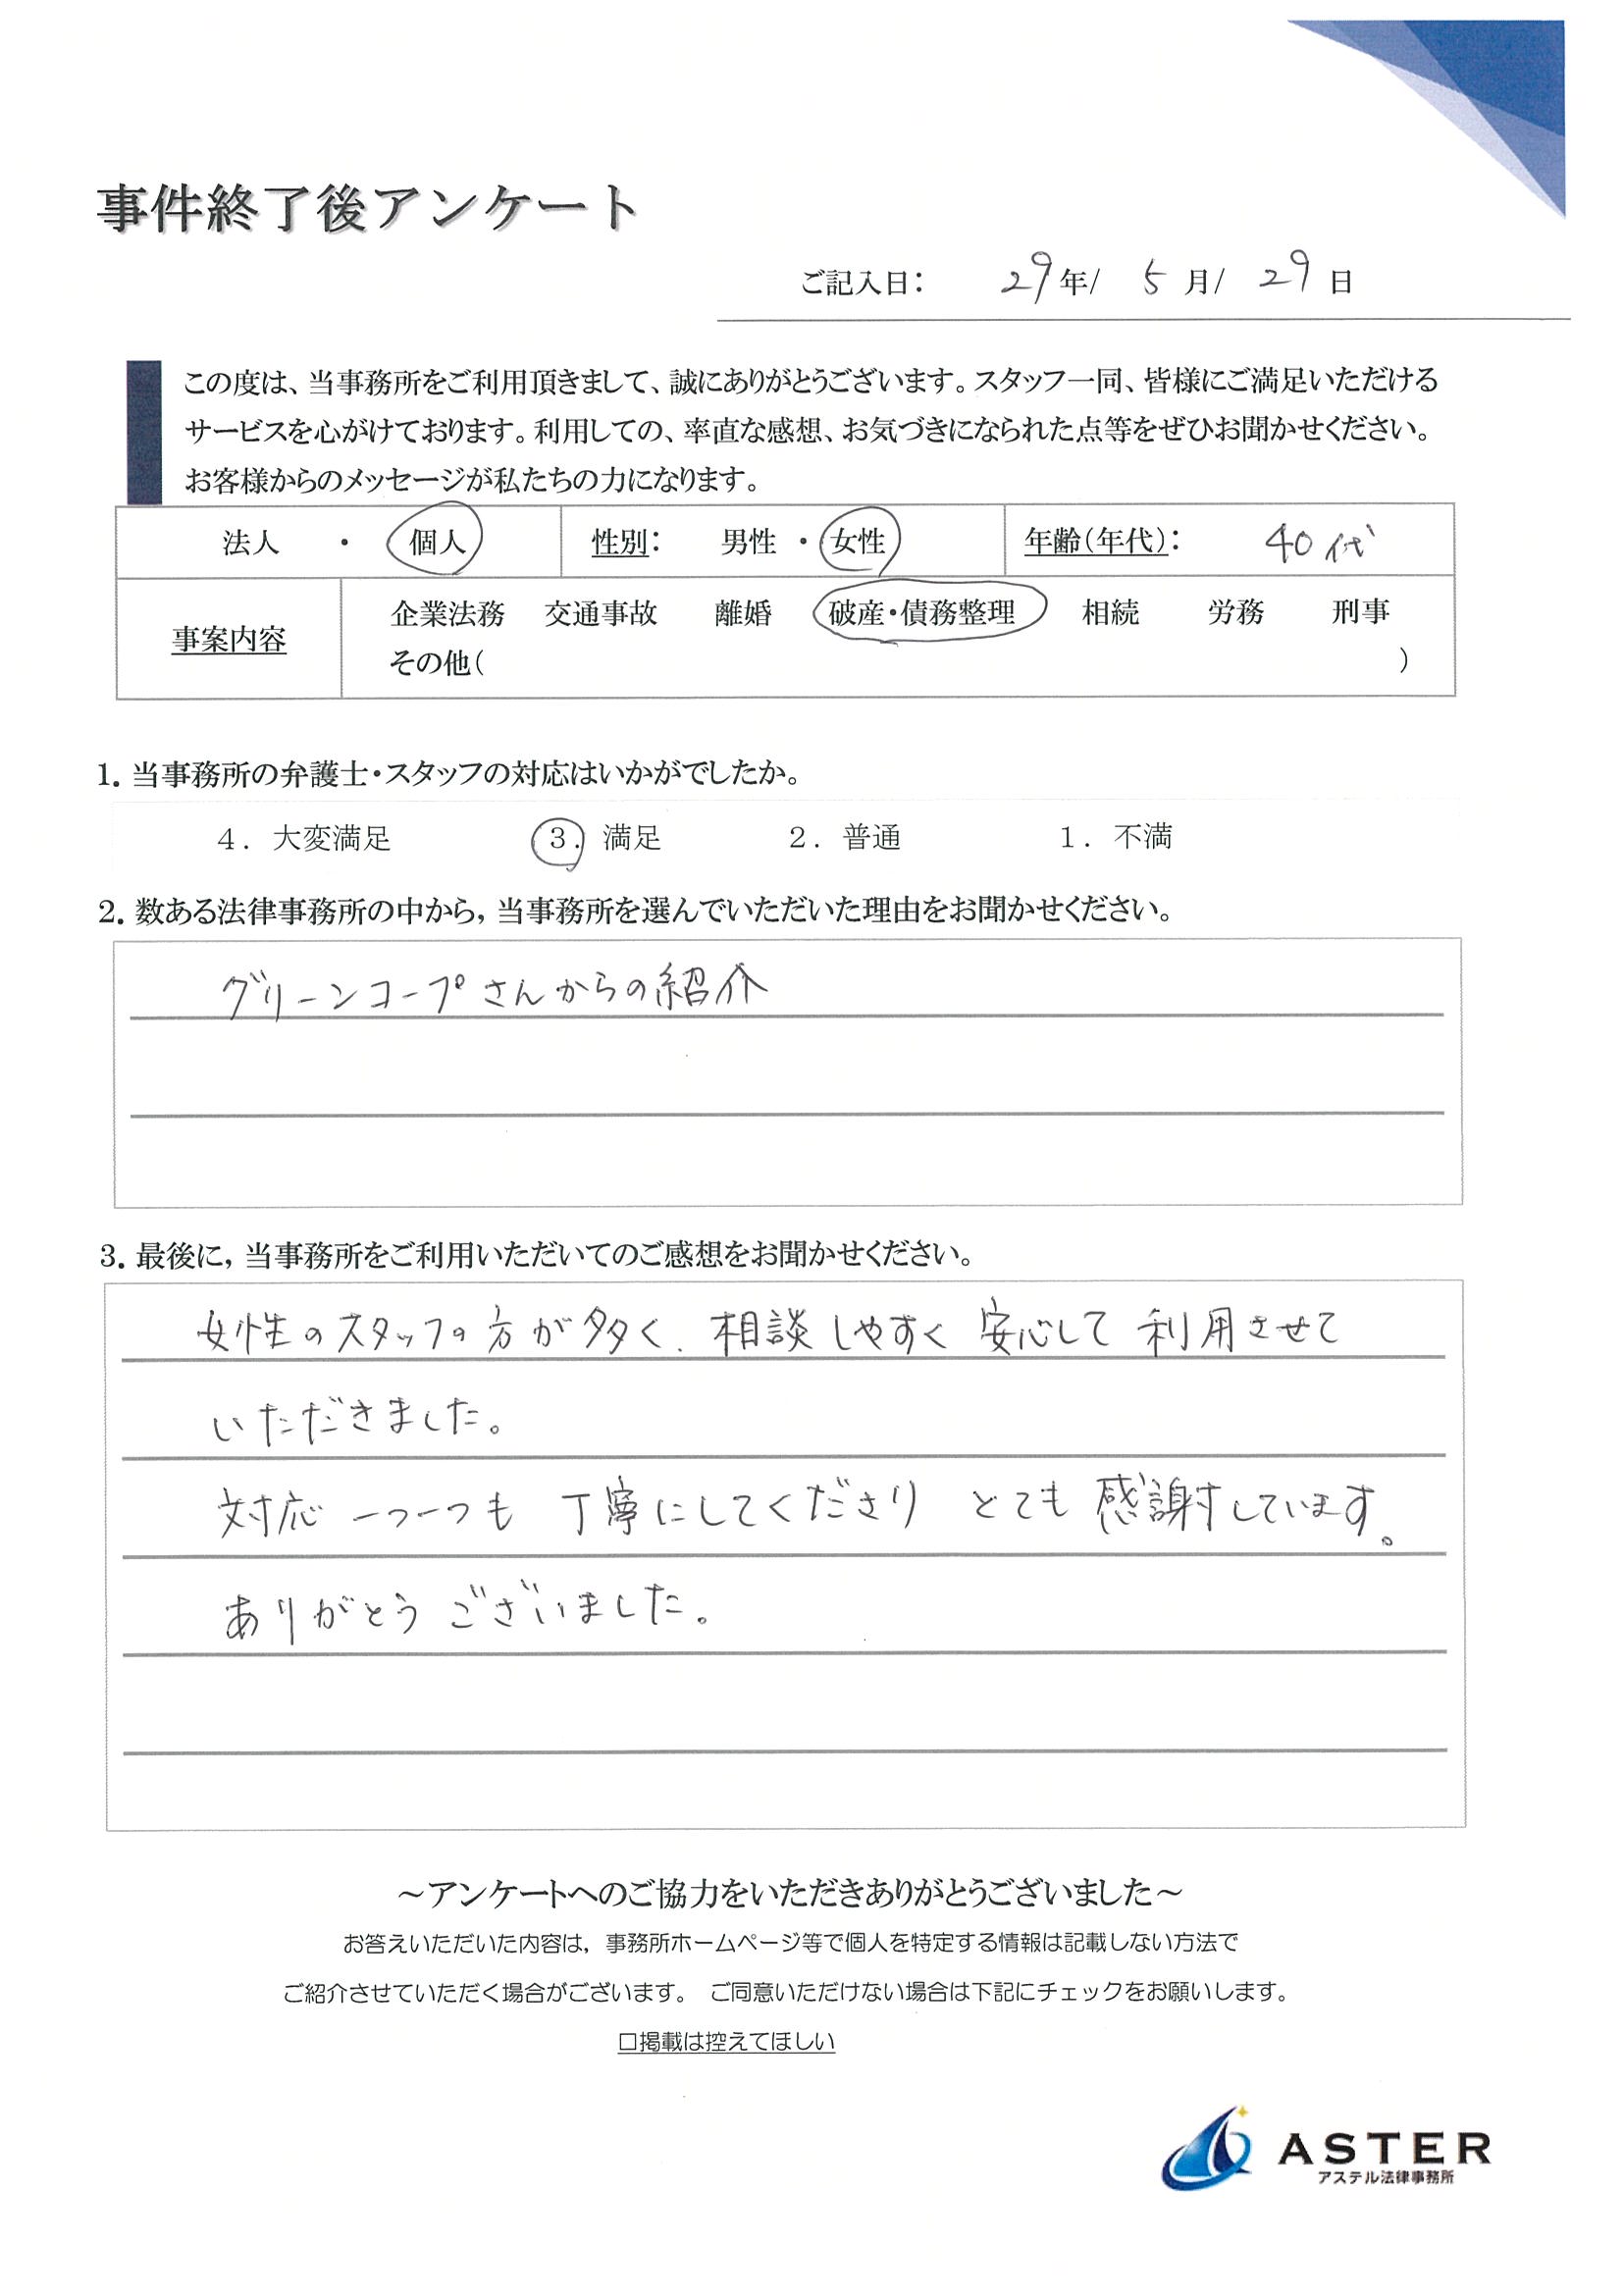 事件終了後アンケート
ご記入日： 29年/ 5月/ 29日
この度は、当事務所をご利用頂きまして、誠にありがとうございます。スタッフ一同、皆様にご満足いただける
サービスを心がけております。利用しての、率直な感想、お気づきになられた点等をぜひお聞かせください。
お客様からのメッセージが私たちの力になります。
法人 ・ 個人 性別： 男性 ・ 女性 年齢（年代）： 40代
企業法務 交通事故 離婚 破産・債務整理 相続 労務 刑事
事案内容
その他（ ）
1. 当事務所の弁護士・スタッフの対応はいかがでしたか。
4． 大変満足 3． 満足 2． 普通 1． 不満
2. 数ある法律事務所の中から，当事務所を選んでいただいた理由をお聞かせください。
グリーンコープさんからの紹介
3. 最後に，当事務所をご利用いただいてのご感想をお聞かせください。
女性のスタッフの方が多く、相談しやすく 安心して 利用させて
いただきました。
対応 一つ一つも 丁寧にしてくださり とても 感謝しています。
ありがとう ございました。
～アンケートへのご協力をいただきありがとうございました～
お答えいただいた内容は，事務所ホームページ等で個人を特定する情報は記載しない方法で
ご紹介させていただく場合がございます。 ご同意いただけない場合は下記にチェックをお願いします。
□掲載は控えてほしい
ASTER
アステル法律事務所